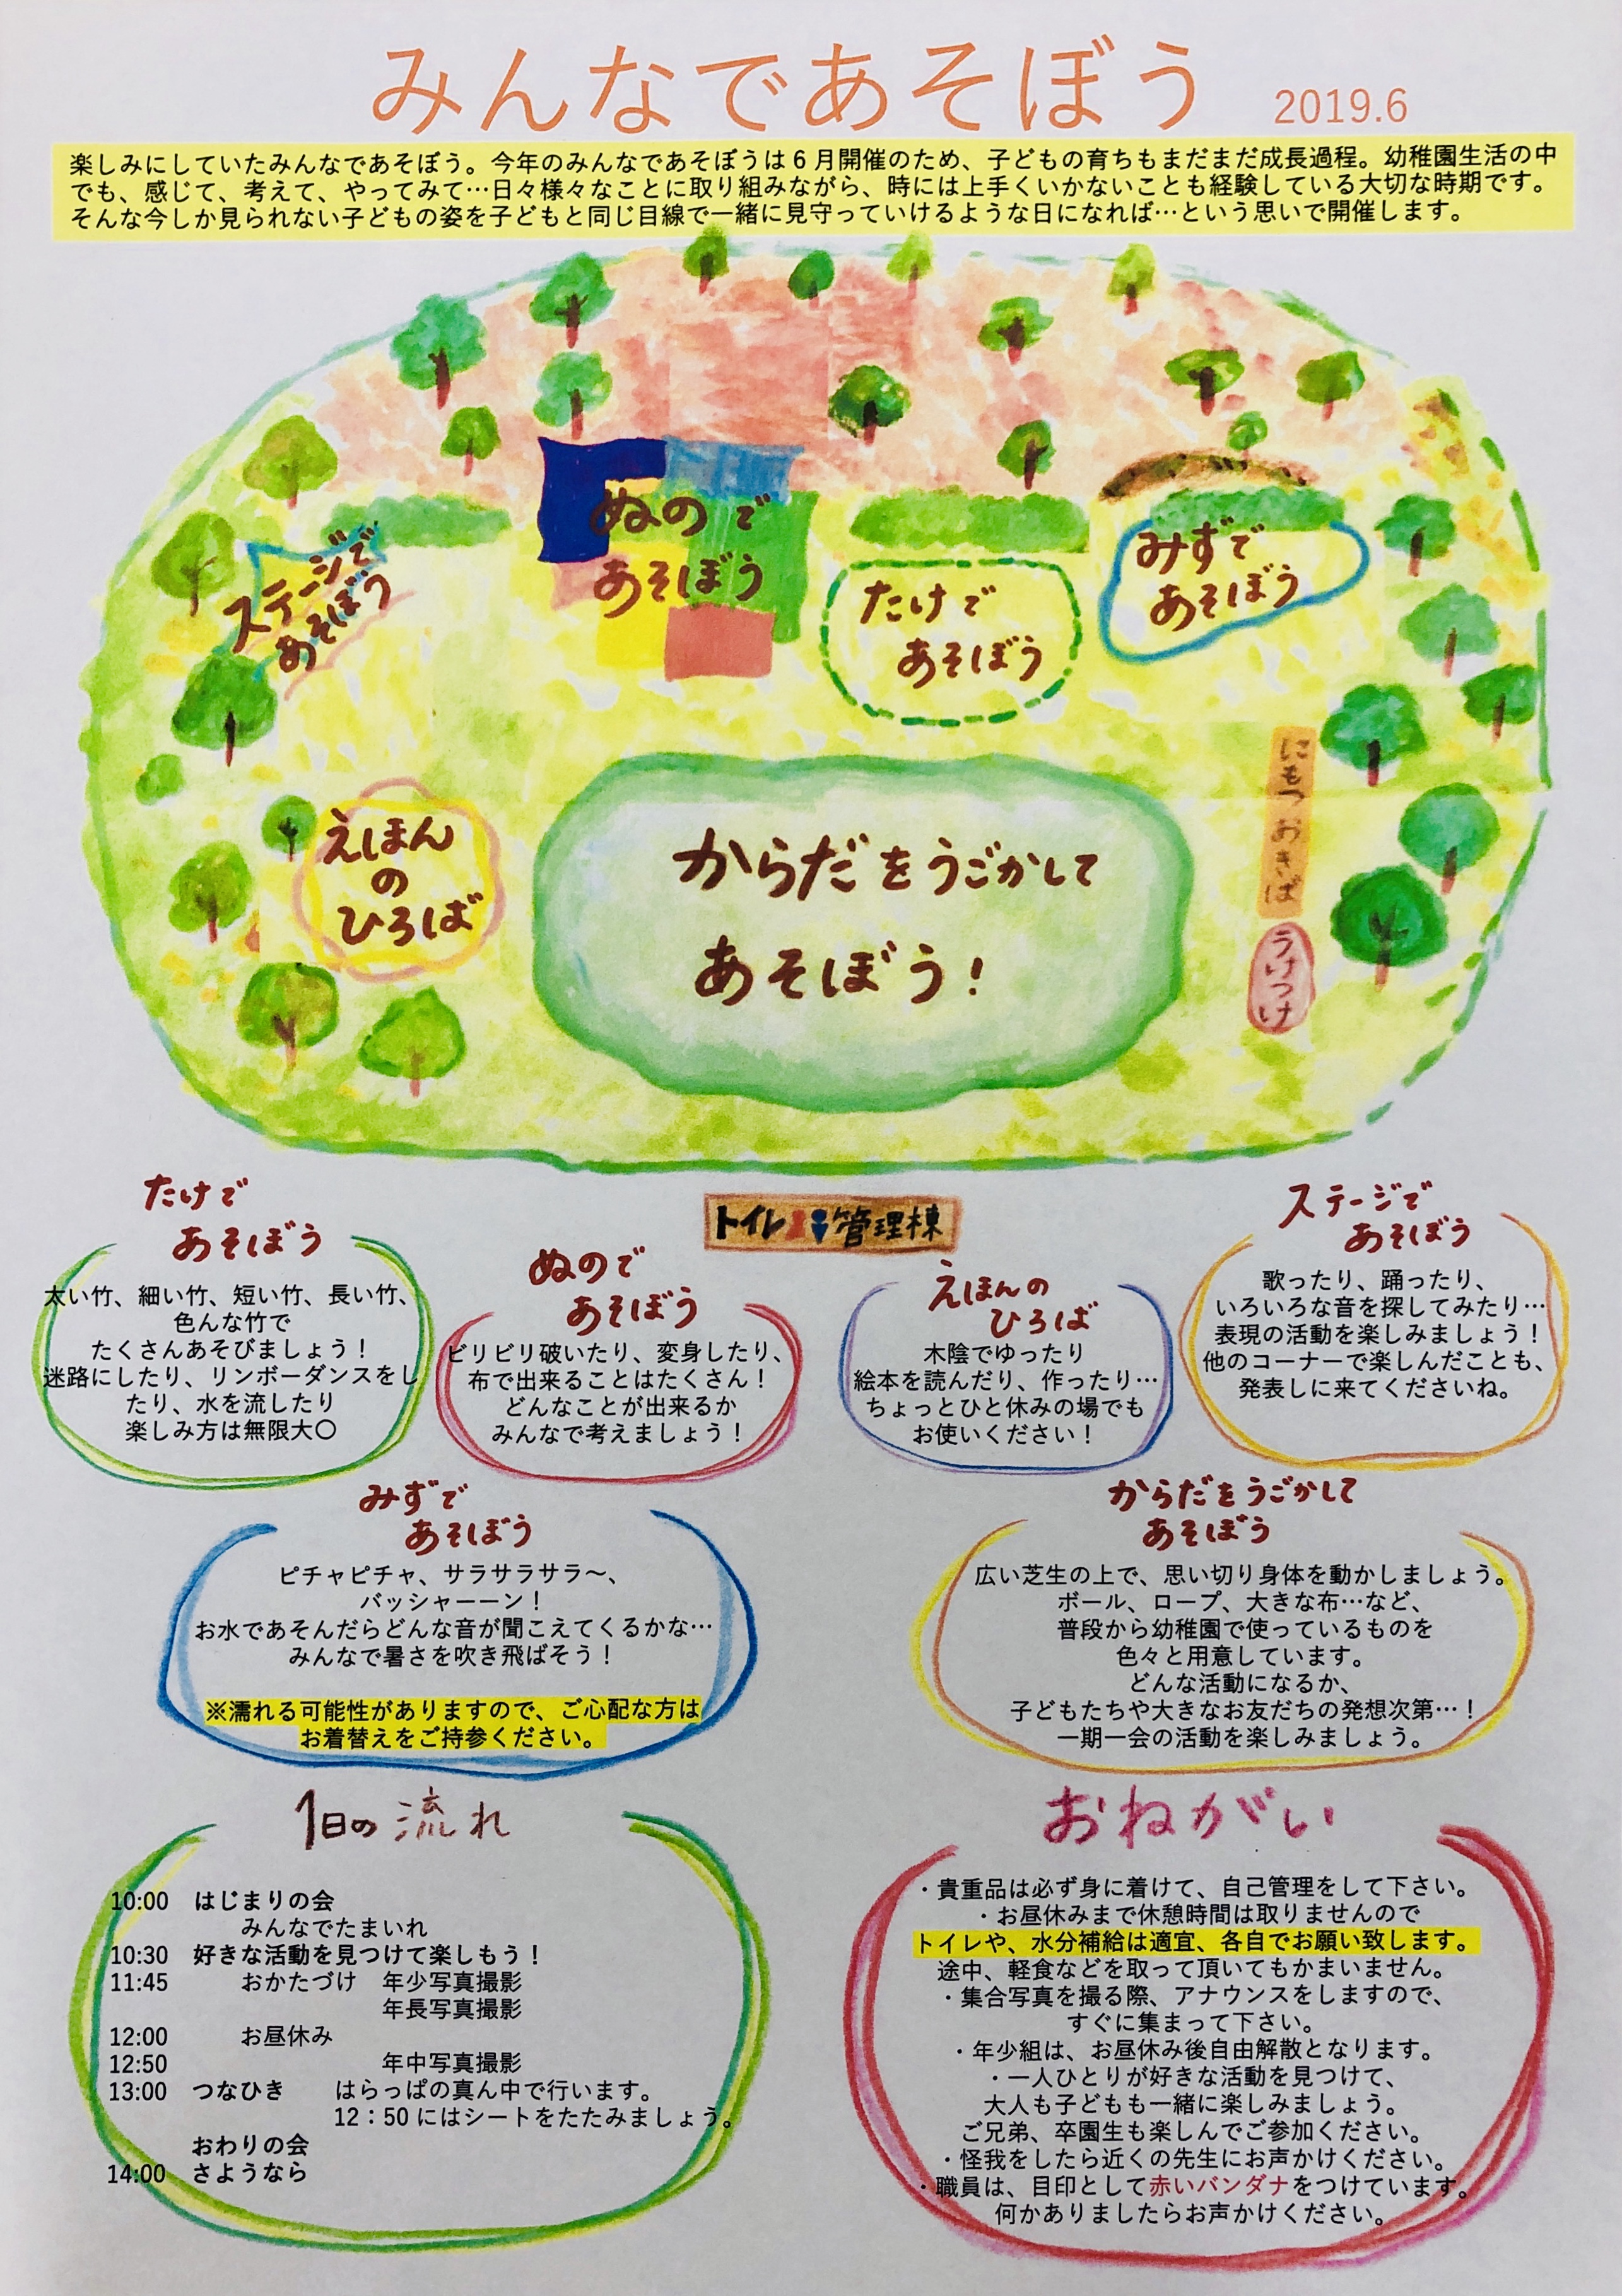 みんなであそぼう 2019.6
楽しみにしていたみんなであそぼう。今年のみんなであそぼうは6月開催のため、子どもの育ちもまだまだ成長過程。幼稚園生活の中
でも、感じて、考えて、やってみて…日々様々なことに取り組みながら、時には上手くいかないことも経験している大切な時期です。
そんな今しか見られない子どもの姿を子どもと同じ目線で一緒に見守っていけるような日になれば…という思いで開催します。
ステージで
あそぼう
ぬので
あそぼう
たけで
あそぼう
みずで
あそぼう
にもつおきば
うけつけ
えほん
の
ひろば
からだをうごかして
あそぼう！
トイレ 管理棟
たけで
あそぼう
太い竹、細い竹、短い竹、長い竹、
色んな竹で
たくさんあそびましょう！
迷路にしたり、リンボーダンスをし
たり、水を流したり
楽しみ方は無限大〇
ぬので
あそぼう
ビリビリ破いたり、変身したり、
布で出来ることはたくさん！
どんなことが出来るか
みんなで考えましょう！
えほんの
ひろば
木陰でゆったり
絵本を読んだり、作ったり…
ちょっとひと休みの場でも
お使いください！
ステージで
あそぼう
歌ったり、踊ったり、
いろいろな音を探してみたり…
表現の活動を楽しみましょう！
他のコーナーで楽しんだことも、
発表しに来てくださいね。
みずで
あそぼう
ピチャピチャ、サラサラサラ～、
バッシャーーン！
お水であそんだらどんな音が聞こえてくるかな…
みんなで暑さを吹き飛ばそう！
※濡れる可能性がありますので、ご心配な方は
お着替えをご持参ください。
からだをうごかして
あそぼう
広い芝生の上で、思い切り身体を動かしましょう。
ボール、ロープ、大きな布…など、
普段から幼稚園で使っているものを
色々と用意しています。
どんな活動になるか、
子どもたちや大きなお友だちの発想次第…！
一期一会の活動を楽しみましょう。
1日の流れ
10:00 はじまりの会
みんなでたまいれ
10:30 好きな活動を見つけて楽しもう！
11:45 おかたづけ 年少写真撮影
年長写真撮影
12:00 お昼休み
12:50 年中写真撮影
13:00 つなひき はらっぱの真ん中で行います。
12：50にはシートをたたみましょう。
おわりの会
14:00 さようなら
おねがい
・貴重品は必ず身に着けて、自己管理をして下さい。
・お昼休みまで休憩時間は取りませんので
トイレや、水分補給は適宜、各自でお願い致します。
途中、軽食などを取って頂いてもかまいません。
・集合写真を撮る際、アナウンスをしますので、
すぐに集まって下さい。
・年少組は、お昼休み後自由解散となります。
・一人ひとりが好きな活動を見つけて、
大人も子どもも一緒に楽しみましょう。
ご兄弟、卒園生も楽しんでご参加ください。
・怪我をしたら近くの先生にお声かけください。
・職員は、目印として赤いバンダナをつけています。
何かありましたらお声かけください。